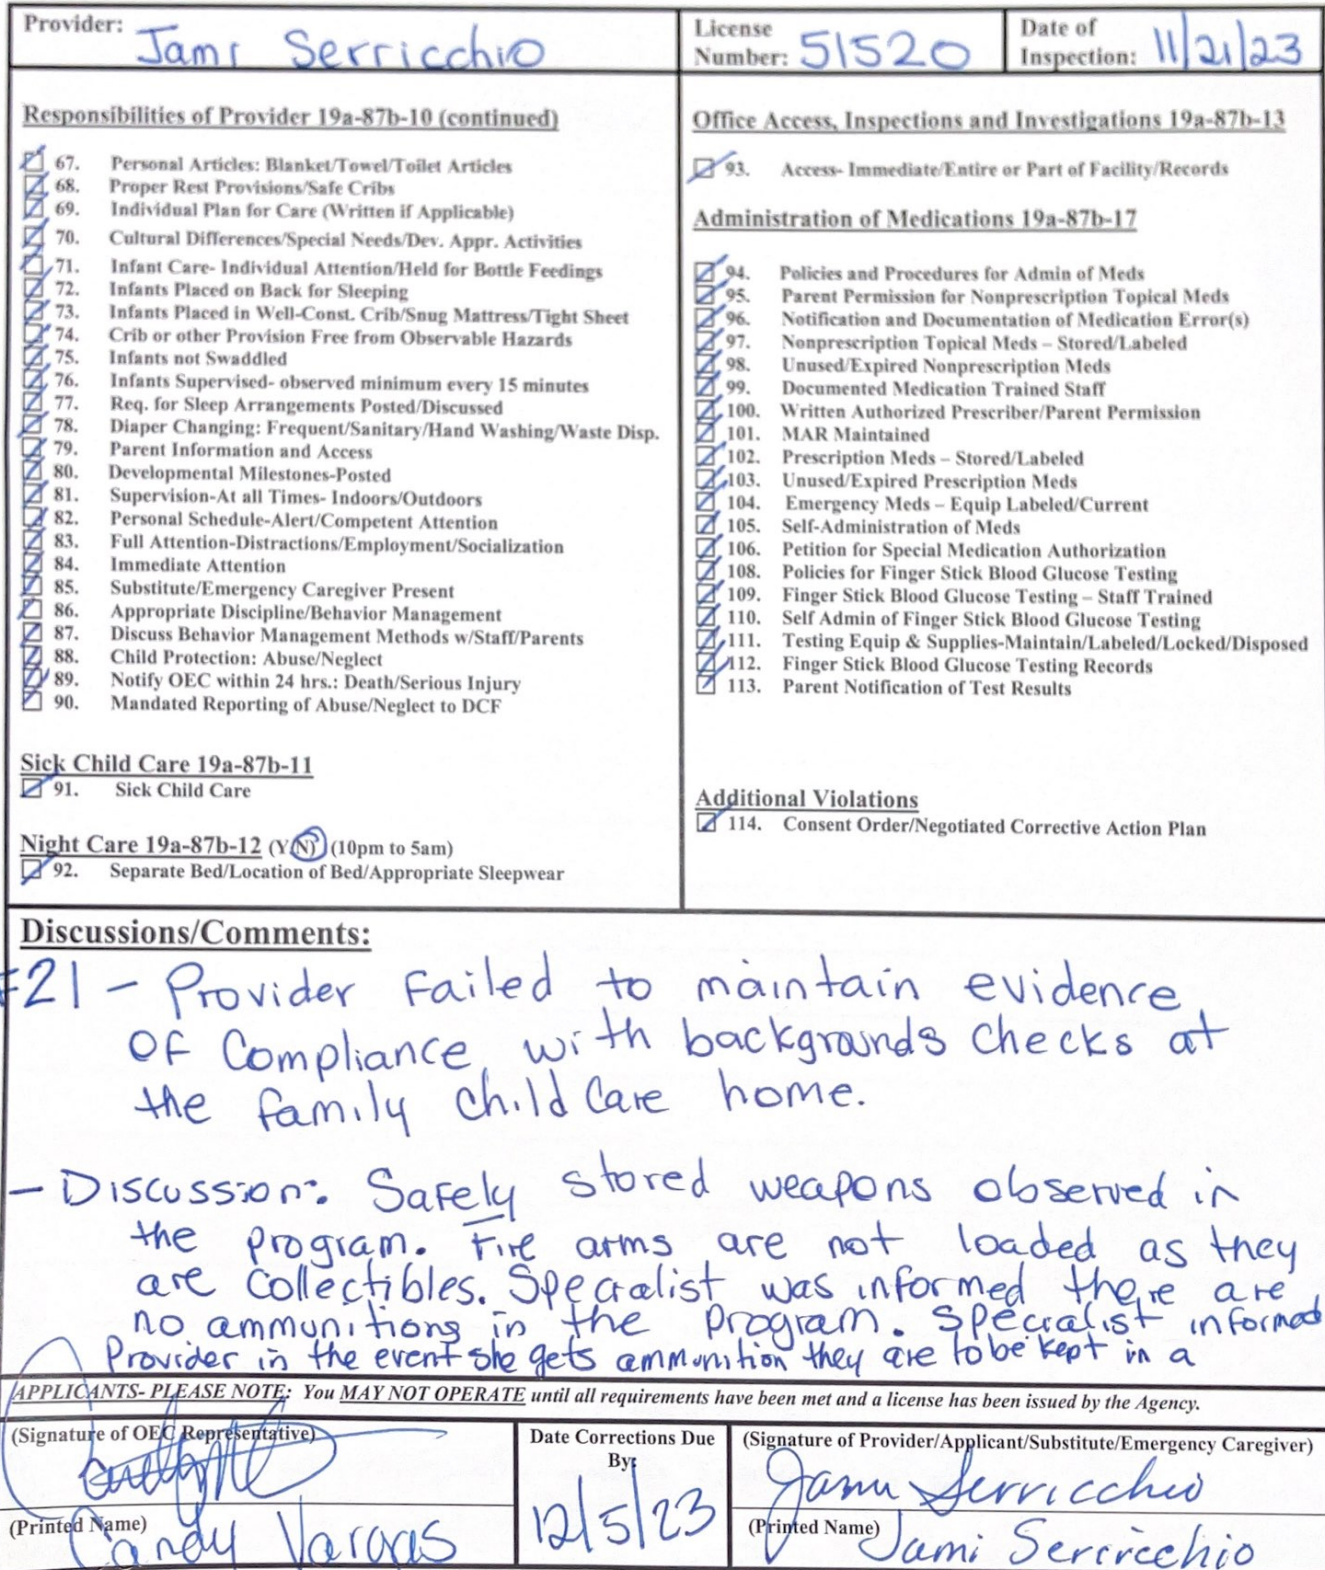 Provider: Jami Serricchio
License Number: 51520
Date of Inspection: 11/21/23
Responsibilities of Provider 19a-87b-10 (continued)
67. Personal Articles: Blanket/Towel/Toilet Articles
68. Proper Rest Provisions/Safe Cribs
69. Individual Plan for Care (Written if Applicable)
70. Cultural Differences/Special Needs/Dev. Appr. Activities
71. Infant Care- Individual Attention/Held for Bottle Feedings
72. Infants Placed on Back for Sleeping
73. Infants Placed in Well-Const. Crib/Snug Mattress/Tight Sheet
74. Crib or other Provision Free from Observable Hazards
75. Infants not Swaddled
76. Infants Supervised- observed minimum every 15 minutes
77. Req. for Sleep Arrangements Posted/Discussed
78. Diaper Changing: Frequent/Sanitary/Hand Washing/Waste Disp.
79. Parent Information and Access
80. Developmental Milestones-Posted
81. Supervision-At all Times- Indoors/Outdoors
82. Personal Schedule-Alert/Competent Attention
83. Full Attention-Distractions/Employment/Socialization
84. Immediate Attention
85. Substitute/Emergency Caregiver Present
86. Appropriate Discipline/Behavior Management
87. Discuss Behavior Management Methods w/Staff/Parents
88. Child Protection: Abuse/Neglect
89. Notify OEC within 24 hrs.: Death/Serious Injury
90. Mandated Reporting of Abuse/Neglect to DCF
Sick Child Care 19a-87b-11
91. Sick Child Care
Night Care 19a-87b-12 (Y/N) (10pm to 5am)
92. Separate Bed/Location of Bed/Appropriate Sleepwear
Office Access, Inspections and Investigations 19a-87b-13
93. Access- Immediate/Entire or Part of Facility/Records
Administration of Medications 19a-87b-17
94. Policies and Procedures for Admin of Meds
95. Parent Permission for Nonprescription Topical Meds
96. Notification and Documentation of Medication Error(s)
97. Nonprescription Topical Meds – Stored/Labeled
98. Unused/Expired Nonprescription Meds
99. Documented Medication Trained Staff
100. Written Authorized Prescriber/Parent Permission
101. MAR Maintained
102. Prescription Meds – Stored/Labeled
103. Unused/Expired Prescription Meds
104. Emergency Meds – Equip Labeled/Current
105. Self-Administration of Meds
106. Petition for Special Medication Authorization
108. Policies for Finger Stick Blood Glucose Testing
109. Finger Stick Blood Glucose Testing – Staff Trained
110. Self Admin of Finger Stick Blood Glucose Testing
111. Testing Equip & Supplies-Maintain/Labeled/Locked/Disposed
112. Finger Stick Blood Glucose Testing Records
113. Parent Notification of Test Results
Additional Violations
114. Consent Order/Negotiated Corrective Action Plan
Discussions/Comments:
#21 – Provider failed to maintain evidence
of compliance with backgrounds checks at
the family child care home.
– Discussion: Safely stored weapons observed in
the program. Fire arms are not loaded as they
are collectibles. Specialist was informed there are
no ammunitions in the program. Specialist informed
Provider in the event she gets ammunition they are to be kept in a
APPLICANTS- PLEASE NOTE: You MAY NOT OPERATE until all requirements have been met and a license has been issued by the Agency.
(Signature of OEC Representative)
(Printed Name) Candy Vargas
Date Corrections Due
By:
12/5/23
(Signature of Provider/Applicant/Substitute/Emergency Caregiver)
Jami Serricchio
(Printed Name) Jami Serricchio